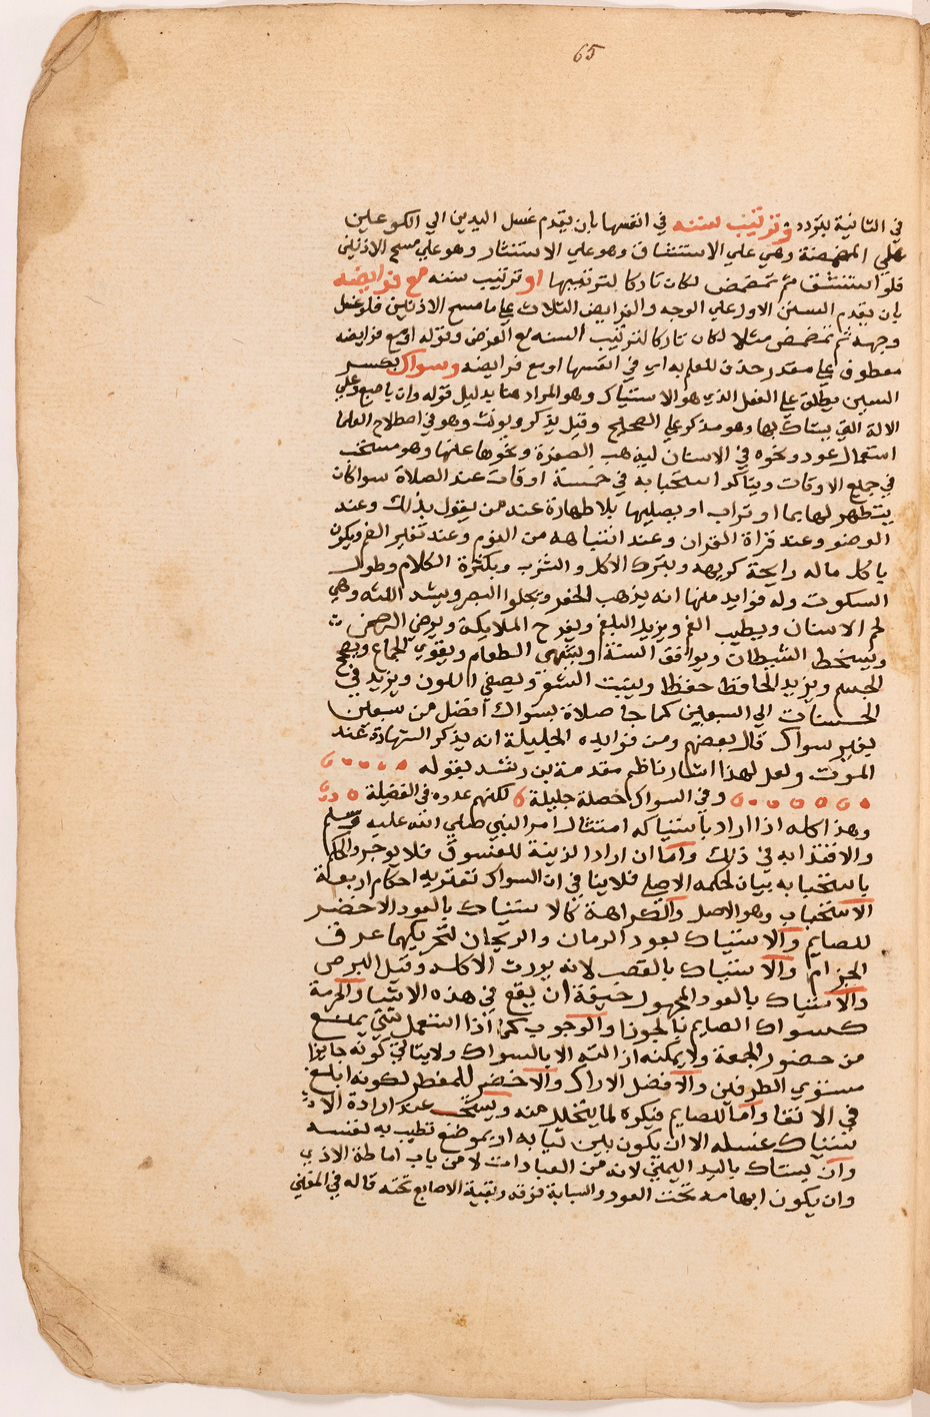 65
في الثانية لتردده وترتيب سننه في انفسها بان يقدم غسل اليدين الي الكوعين
علي المضمضة وهي علي الاستنشاق وهو علي الاستنثار وهو علي مسح الاذنين
فلو استنشق ثم تمضمض لكان تاركا لترتيبها او ترتيب سننه مع فرايضه
بان يقدم السنن الاول علي الوجه والفرايض الثلاث علي ما مسح الاذنين فلو غسل
وجهه ثم تمضمض مثلا لكان تاركا لترتيب السنه مع الفرض وقوله او مع فرايضه
معطوف علي مقدر حذف للعلم به اي في انفسها او مع فرايضه وسواك بكسر
السين يطلق علي الفعل الذي هو الاستياك وهو المراد هنا بدليل قوله وان باصبع وعلي
الالة التي يستاك بها وهو مذكر علي الصحيح وقيل يذكر ويونث وهو في اصطلاح العلما
استعمال عود ونحوه في الاسنان ليذهب الصفرة ونحوها عنها وهو مستحب
في جميع الاوقات ويتاكد استحبابه في خمسة اوقات عند الصلاة سوا كان
يتطهر لها بما او تراب او يصليها بلا طهارة عند من يقول بذلك وعند
الوضو وعند قراة القران وعند انتباهه من النوم وعند تغير الفم ويكون
باكل ماله رايحة كريهه وبترك الاكل والشرب وبكثرة الكلام وطول
السكوت وله فوايد منها انه يذهب الحفر ويجلوا البصر ويشد اللثه وهي
لحم الاسنان ويطيب الفم ويزيد البلغم ويفرح الملايكة ويرضي الرحمن
ويسخط الشيطان ويوافق السنة ويشهي الطعام ويقوي الجماع ويصحح
الجسم ويزيد الحافظ حفظا وينبت الشعر ويصفي اللون ويزيد في
الحسنات الي السبعين كما جا صلاة بسواك افضل من سبعين
بغير سواك قال بعضهم ومن فوايده الجليلة انه يذكر الشهادة عند
الموت ولعل لهذا اشار ناظم مقدمة بن رشد بقوله
وفي السواك خصلة جليلة لكنهم عدوه في الفضيلة
وهذا كله اذا اراد باستياكه امتثال امر النبي صلي الله عليه وسلم
والاقتدا به في ذلك واما ان اراد الزينة للفسوق فلا يوجر والحكم
باستحبابه بيان لحكمه الاصلي فلا ينافي ان السواك تعتريه احكام اربعة
الاستحباب وهو الاصل والكراهة كالاستياك بالعود الاخضر
للصايم والاستياك بعود الرمان والريحان لتحريكهما عرق
الجزام والاستياك بالقصب لانه يورث الاكله وقيل البرص
والاستياك بالعود المجهول خيفة ان يقع في هذه الاشيا والحرمة
كسواك الصايم بالجوزا والوجوب كما اذا استعمل شي يمنع
من حضور الجمعة ولا يمكنه ازالته الا بالسواك ولا ينافي كونه جايزا
مستوي الطرفين والافضل الاراك والاخضر للمفطر لكونه ابلغ
في الانقا واما للصايم فيكره لما يتحلل منه ويستحب عند ارادة الا
ستياك غسله الا ان يكون بلين ثيابه او بموضع تطيب به نفسه
وان يستاك باليد اليمني لانه من العبادات لا من باب اماطة الاذي
وان يكون ابهامه تحت العود والسبابة فوقه وبقية الاصابع تحته قاله في المغني